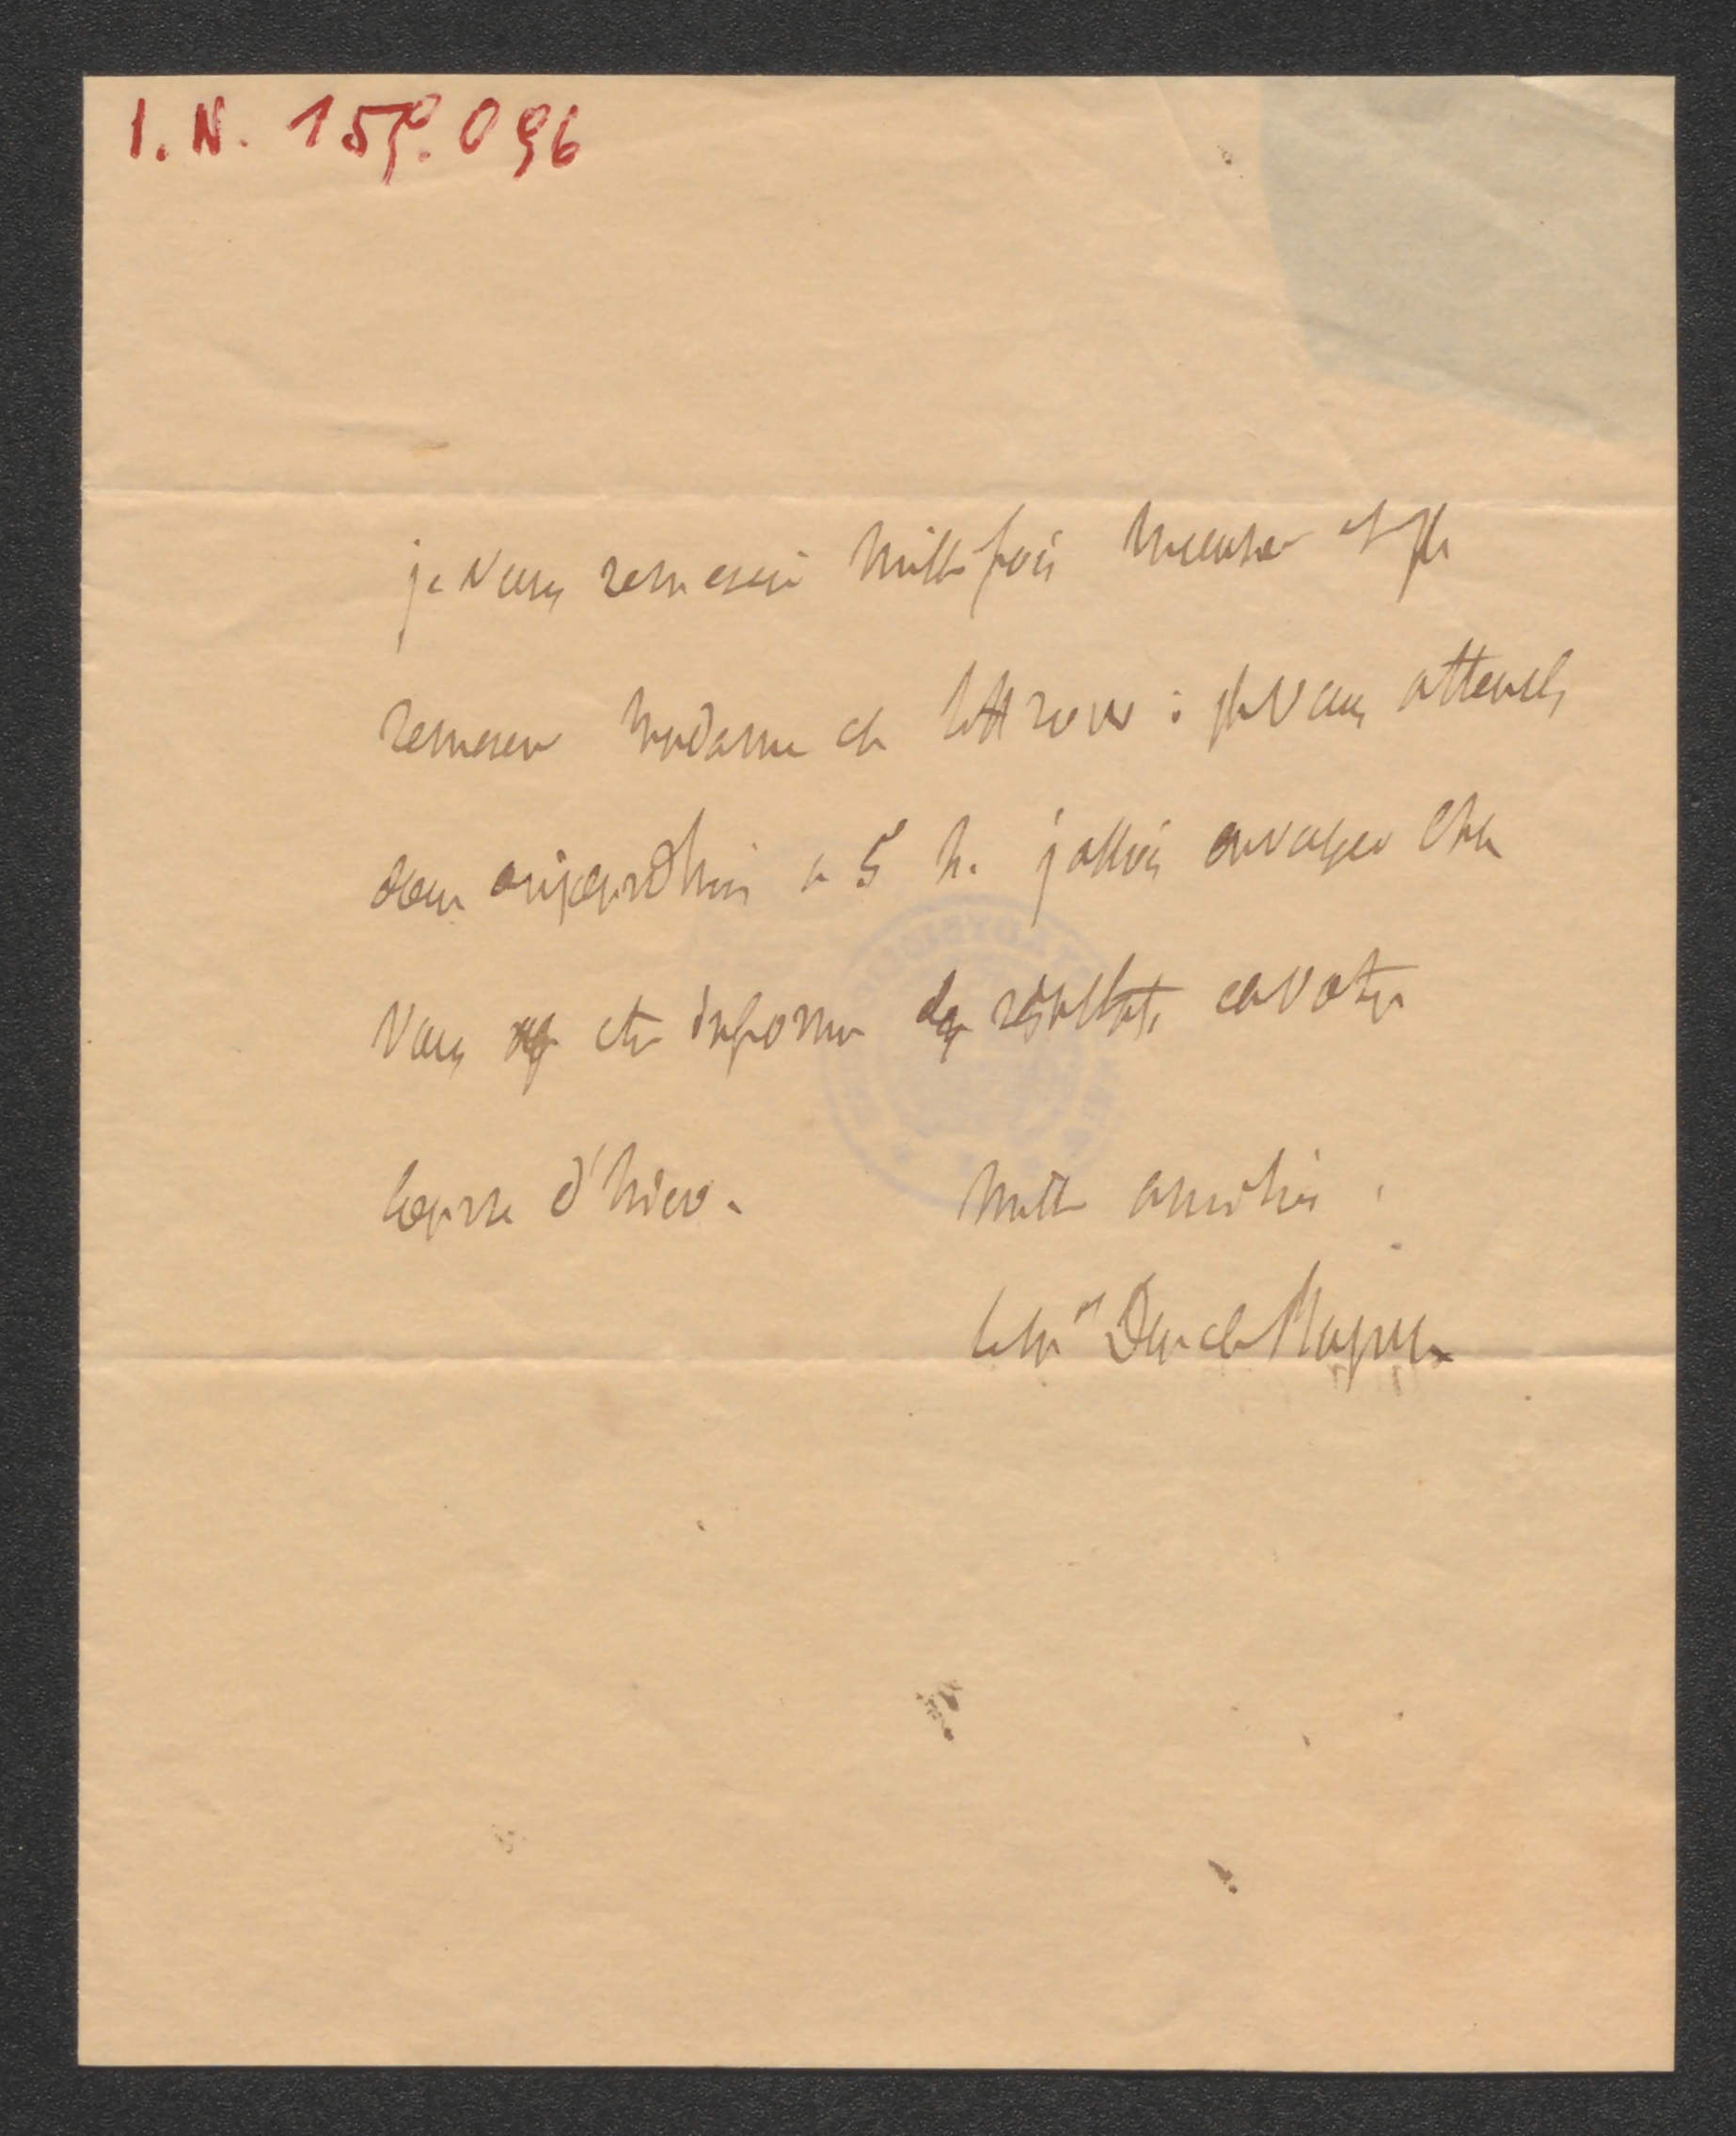 I.N. 159.096
je vous remercie mille fois Monsieur et je
remercie Madame de Littrow : je vous attends
donc aujourdhui a 5 h. j allois envoyer chez
vous et informer des résultats de votre
course d'hier. Mille amitiés.